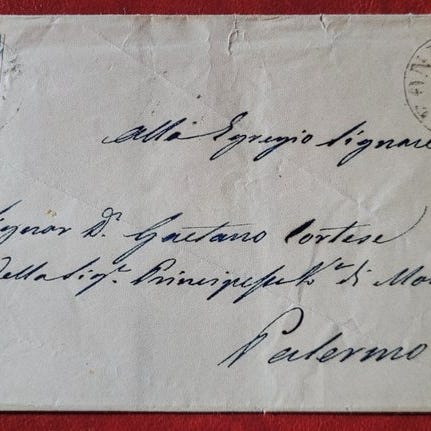 Alla Egregio Signore
Signor D.r Gaetano Cortese
della Sig.ra Principessa di
Palermo